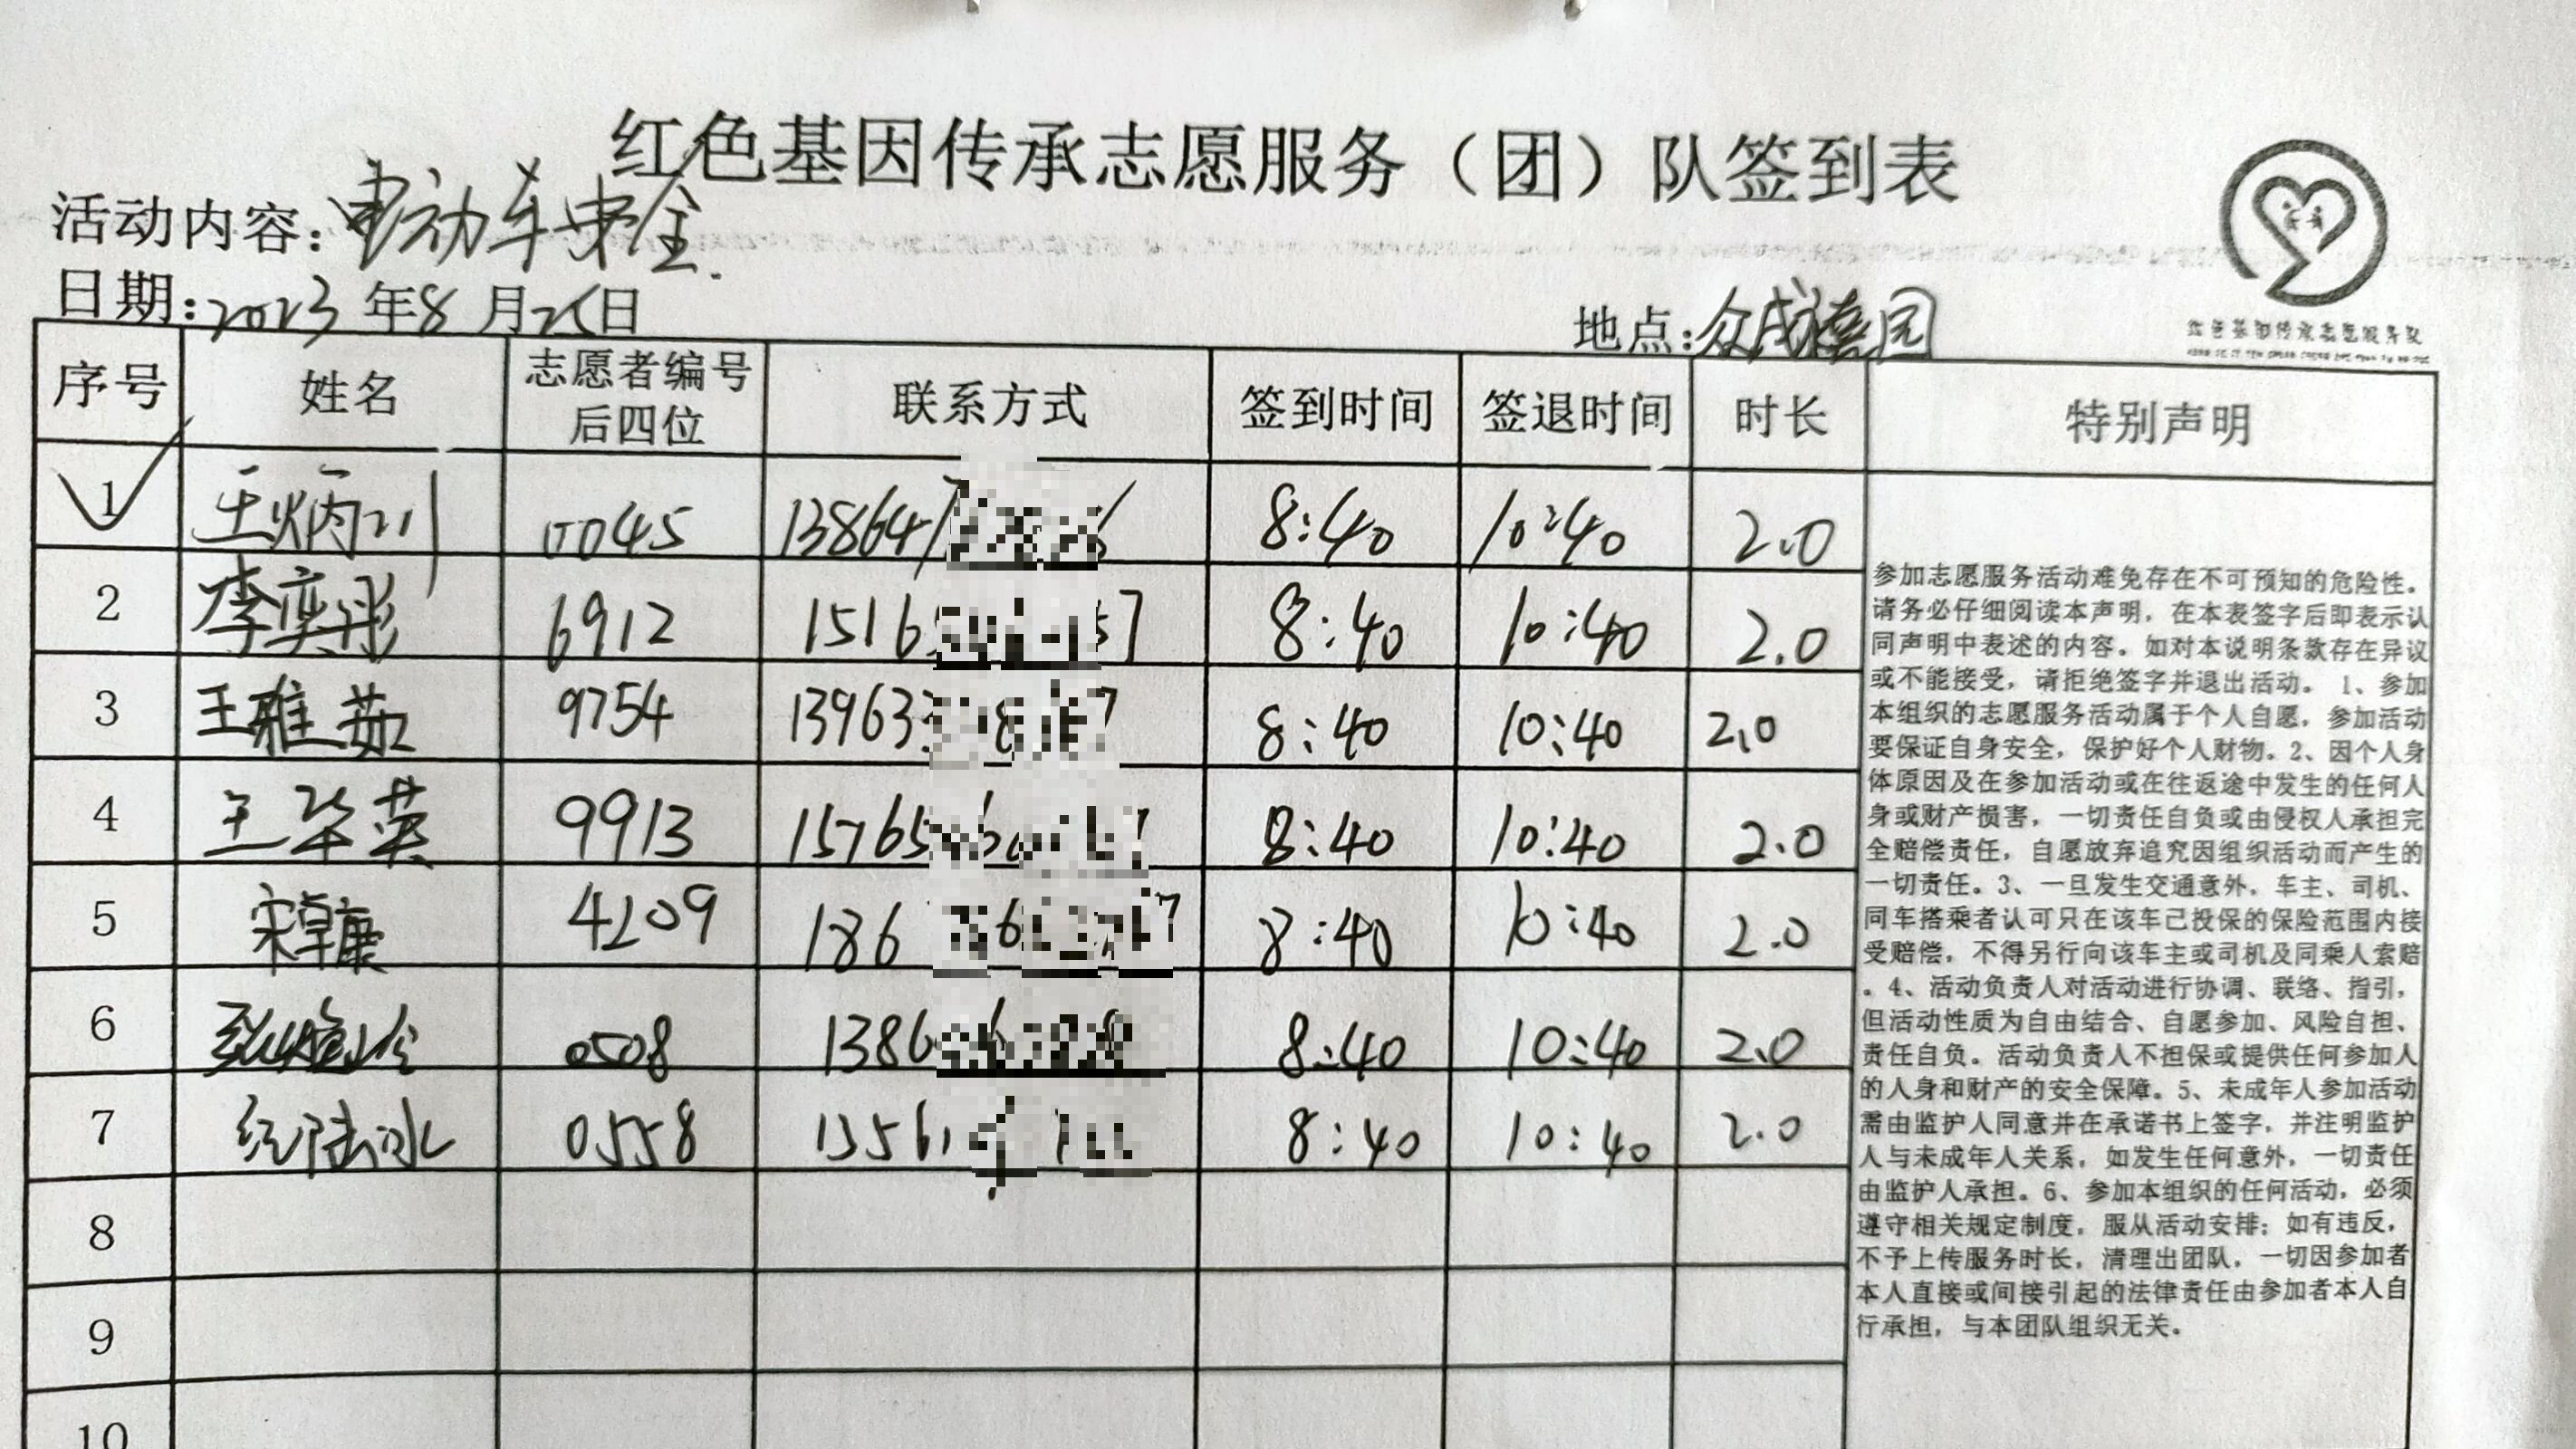 红色基因传承志愿服务（团）队签到表
活动内容：电动车安全.
日期：2023年8月25日
地点：众成德园
红色基因传承志愿服务队
序号 姓名 志愿者编号后四位 联系方式 签到时间 签退时间 时长 特别声明
1 王炳川 0045 13864 8:40 10:40 2.0
2 李奕彤 6912 1516 57 8:40 10:40 2.0
3 王雅茹 9754 13963 7 8:40 10:40 2.0
4 王华英 9913 15765 8:40 10:40 2.0
5 宋卓康 4209 186 8:40 10:40 2.0
6 0508 1386 8:40 10:40 2.0
7 0558 13561 8:40 10:40 2.0
8
9
10
参加志愿服务活动难免存在不可预知的危险性。
请务必仔细阅读本声明，在本表签字后即表示认
同声明中表述的内容。如对本说明条款存在异议
或不能接受，请拒绝签字并退出活动。 1、参加
本组织的志愿服务活动属于个人自愿，参加活动
要保证自身安全，保护好个人财物。2、因个人身
体原因及在参加活动或在往返途中发生的任何人
身或财产损害，一切责任自负或由侵权人承担完
全赔偿责任，自愿放弃追究因组织活动而产生的
一切责任。3、一旦发生交通意外，车主、司机、
同车搭乘者认可只在该车已投保的保险范围内接
受赔偿，不得另行向该车主或司机及同乘人索赔
。4、活动负责人对活动进行协调、联络、指引，
但活动性质为自由结合、自愿参加、风险自担、
责任自负。活动负责人不担保或提供任何参加人
的人身和财产的安全保障。5、未成年人参加活动
需由监护人同意并在承诺书上签字，并注明监护
人与未成年人关系，如发生任何意外，一切责任
由监护人承担。6、参加本组织的任何活动，必须
遵守相关规定制度，服从活动安排；如有违反，
不予上传服务时长，清理出团队，一切因参加者
本人直接或间接引起的法律责任由参加者本人自
行承担，与本团队组织无关。